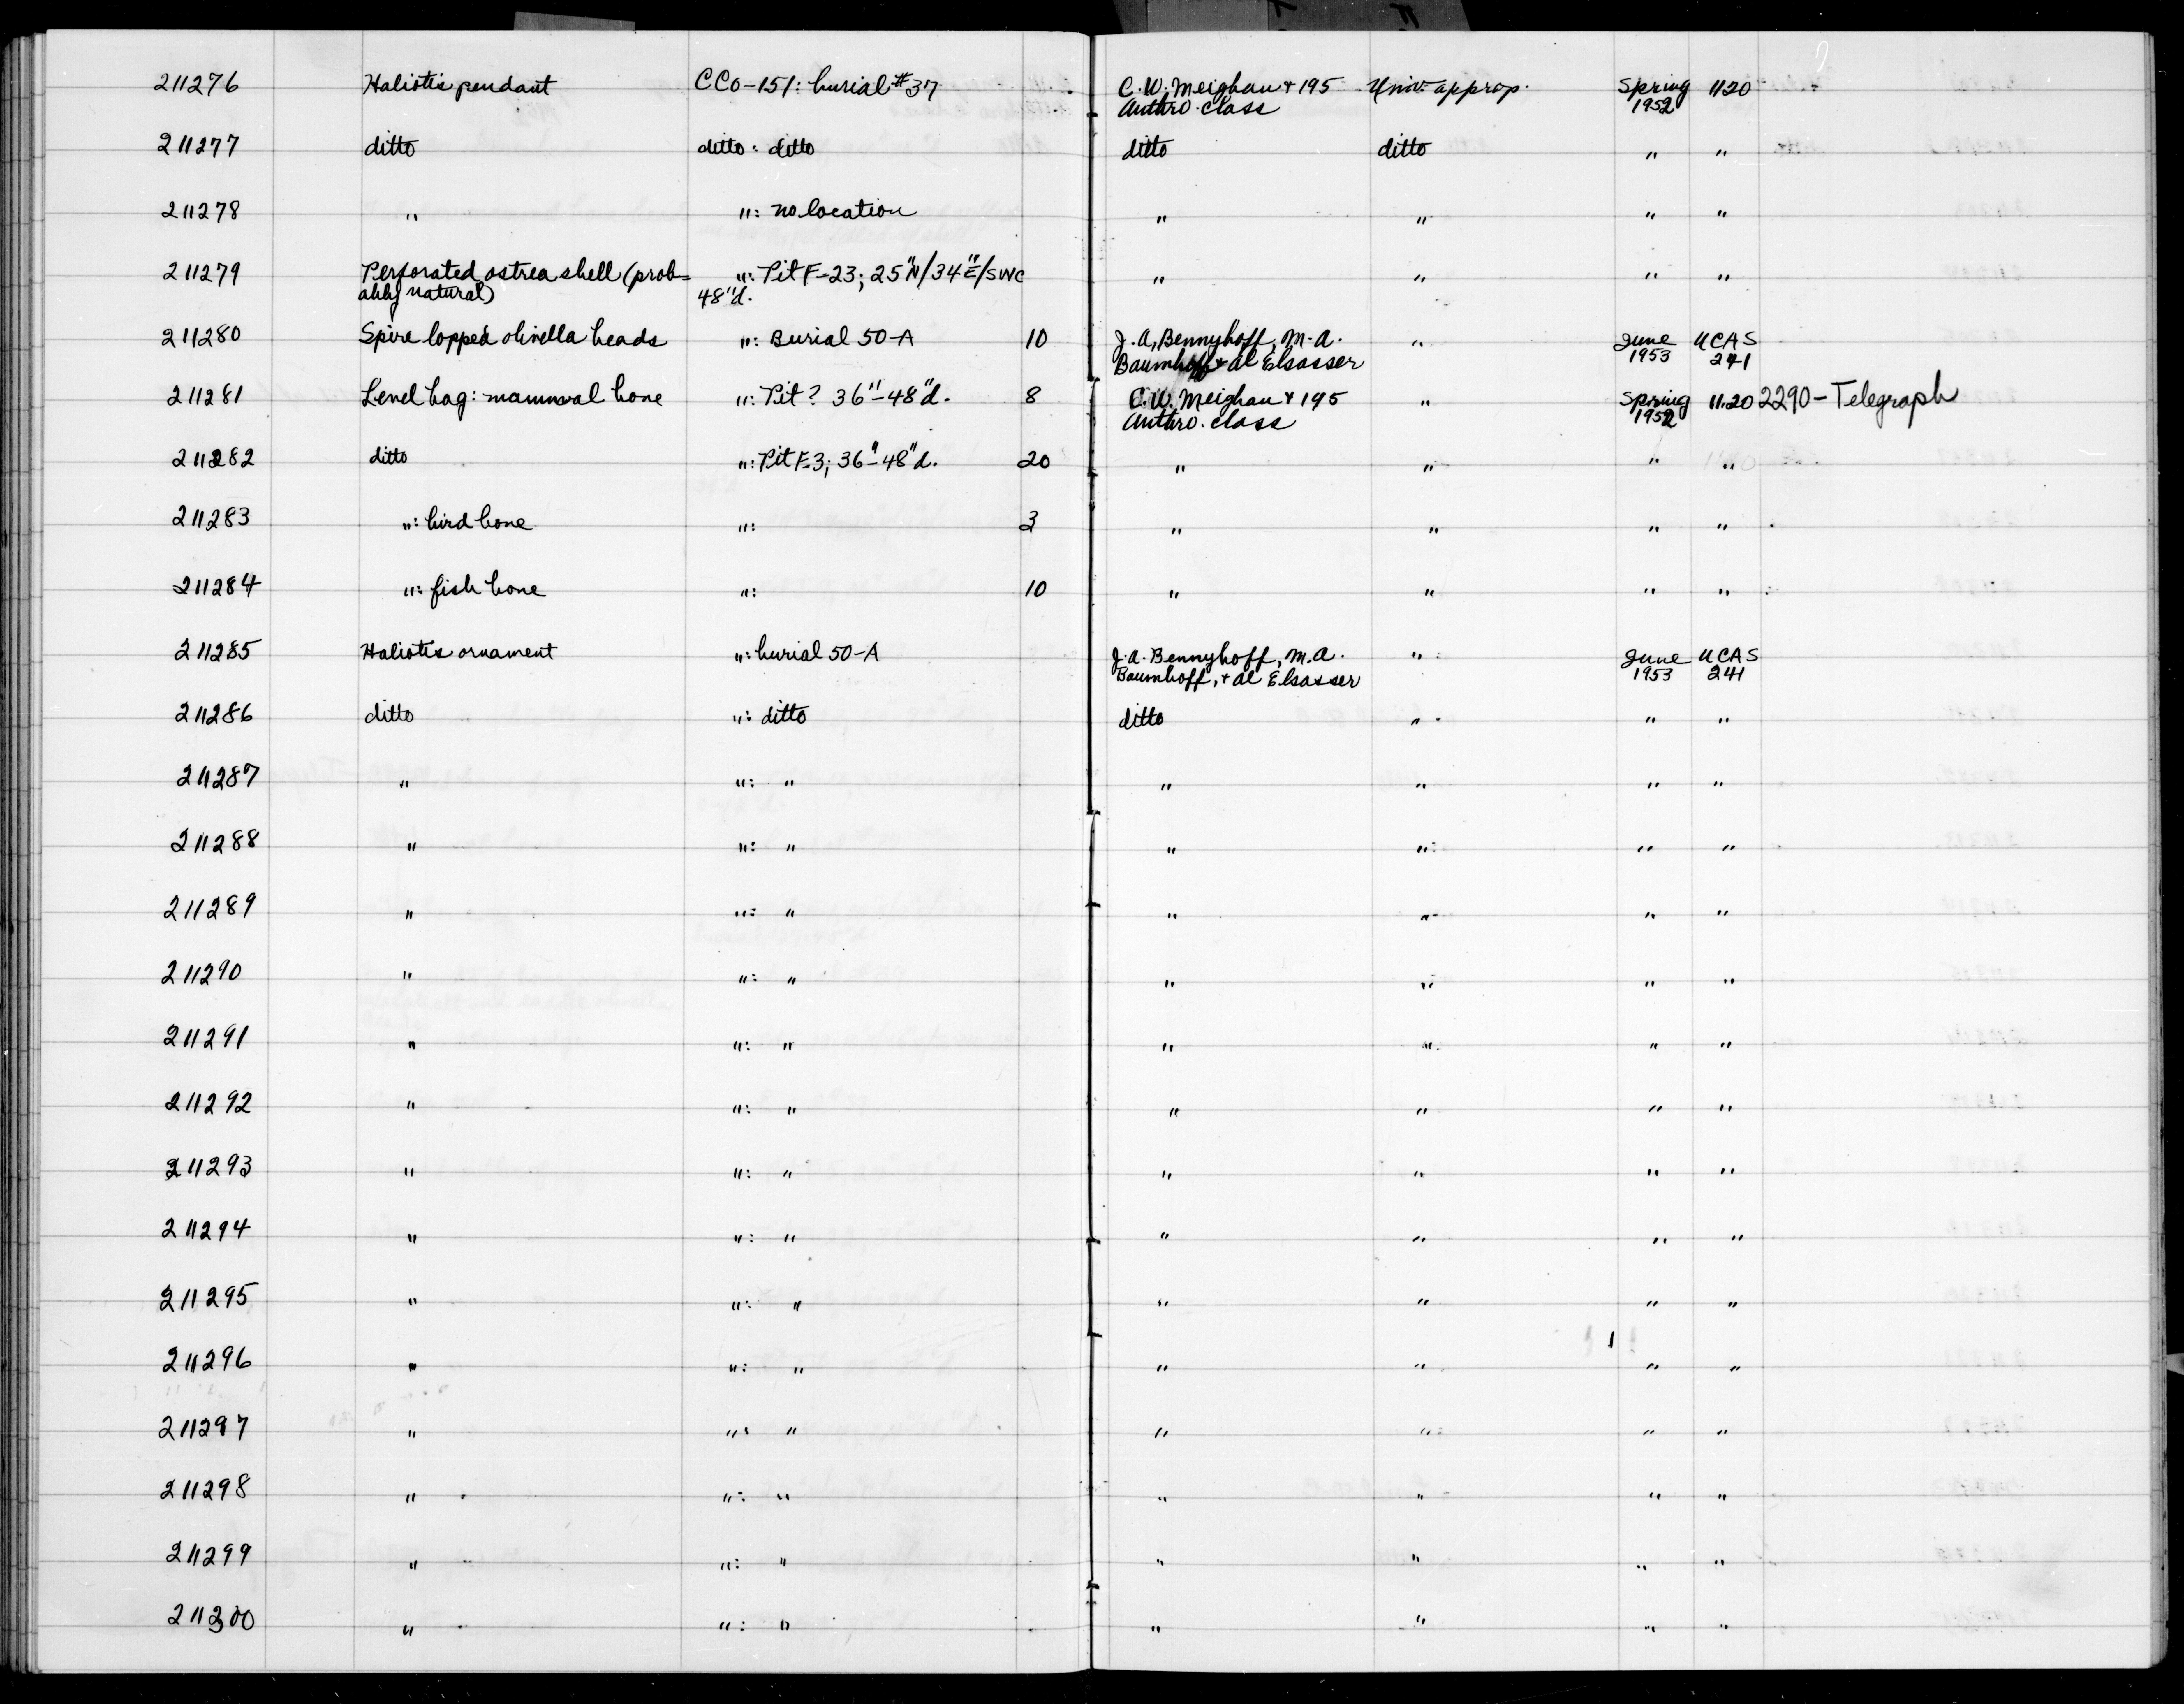 211276 Haliotis pendant CCo-151: burial #37 C.W. Meighan + 195 Univ. approp. Spring 1120
Anthro. class 1952
211277 ditto ditto: ditto ditto ditto " "
211278 " ": no location " " " "
211279 Perforated ostrea shell (prob= ": Pit F-23; 25"N/34"E/SWC " " " "
ably natural) 48"d.
211280 Spire lopped olivella beads ": Burial 50-A 10 J.A. Bennyhoff, M.A. " June UCAS
Baumhoff + al Elsasser 1953 241
211281 Level bag: mammal bone ": Pit? 36"-48"d. 8 C.W. Meighan + 195 " Spring 11.20 2290-Telegraph
Anthro. class 1952
211282 ditto ": Pit F-3; 36"-48"d. 20 " " " "
211283 ": bird bone ": 3 " " " "
211284 ": fish bone ": 10 " " " "
211285 Haliotis ornament ": burial 50-A J.A. Bennyhoff, M.A. " June UCAS
Baumhoff, + al Elsasser 1953 241
211286 ditto ": ditto ditto " " "
211287 " ": " " " " "
211288 " ": " " " " "
211289 " ": " " " " "
211290 " ": " " " " "
211291 " ": " " " " "
211292 " ": " " " " "
211293 " ": " " " " "
211294 " ": " " " " "
211295 " ": " " " " "
211296 " ": " " " " "
211297 " ": " " " " "
211298 " ": " " " " "
211299 " ": " " " " "
211300 " ": " " " " "